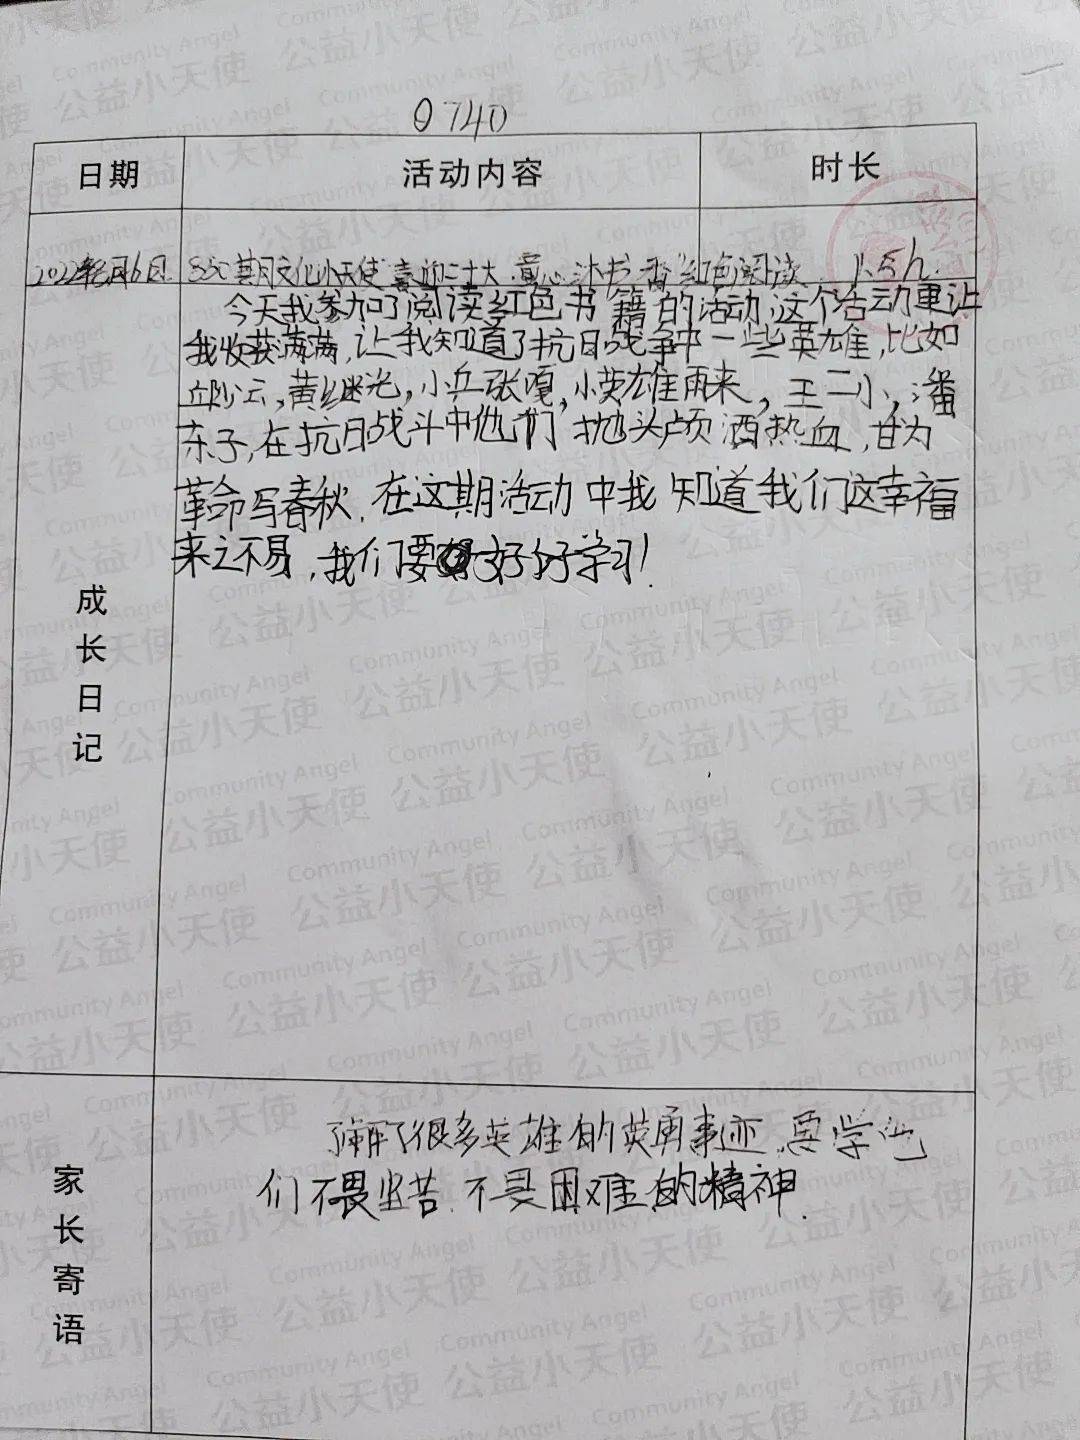 0740
日期 活动内容 时长
2022年8月6日 550期文化小天使"喜迎二十大 童心沐书香"红色阅读 1.5h
今天我参加了阅读红色书籍的活动,这个活动里让
我收获满满,让我知道了抗日战争中一些英雄,比如
,黄继光,小兵张嘎,小英雄雨来,王二小,潘
东子,在抗日战斗中他们抛头颅洒热血,甘为
革命写春秋.在这期活动中我知道我们这幸福
来之不易,我们要好好学习!
成长日记
了解了很多英雄的英勇事迹.要学他
们不畏坚苦.不畏困难的精神.
家长寄语